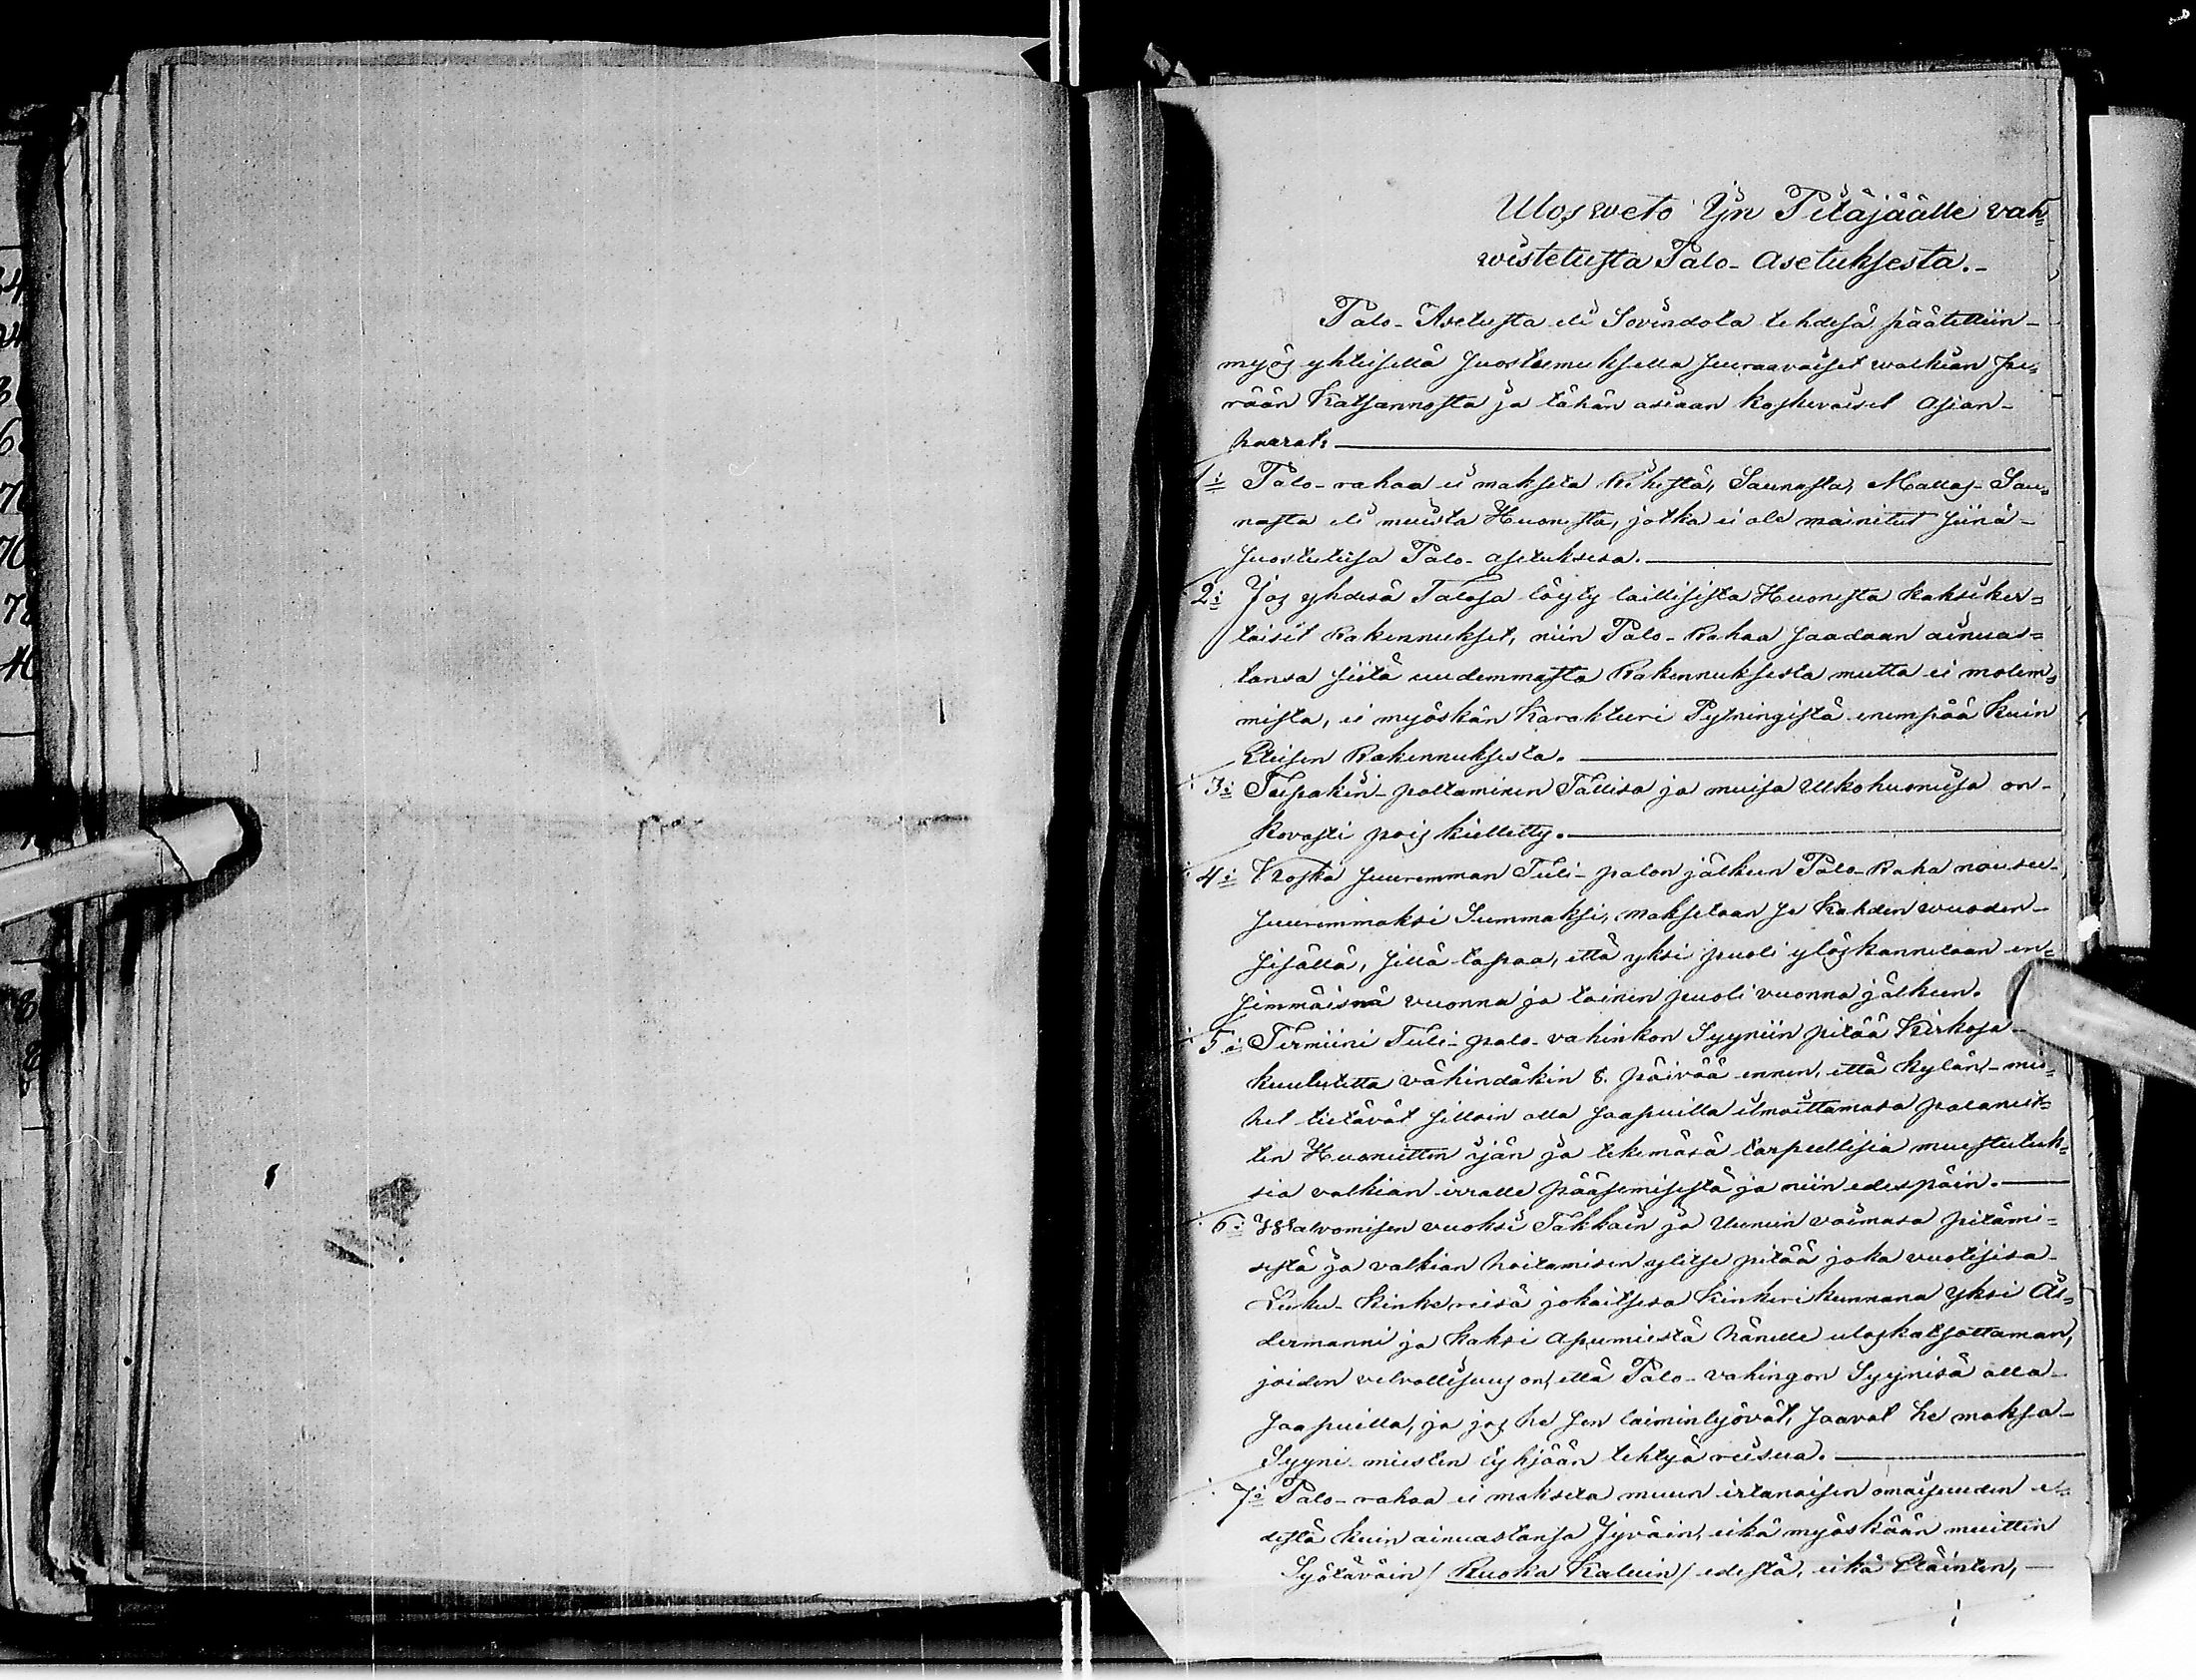 Ulosweto Iin Pitäjäälle vah=
wistetusta Palo-Asetuksesta.-
Palo-Asetusta eli Sovindota tehdesä päätettiin-
myös yhteisellä Suostumuksella seuraavaiset walkian pe=
rään Katsannosta ja tähän asiaan koskevaiset Asian-
haarat:
1:= Palo-rahaa ei makseta Riihestä, Saunasta, Mallas-Sau=
nasta eli muista Huoneista, jotka ei ole mainitut siinä-
suostutuisa Palo-asetuksesa.
2:= Jos yhdesä Talosa löyty laillisista Huoneista kaksiker=
taiset Rakennukset, niin Palo-Rahaa saadaan ainuas=
tansa siitä uudemmasta Rakennuksesta mutta ei molem=
mista, ei myöskän Karakteeri Pytningistä enempää kuin
Eteisen Rakennuksesta.
3:= Tupakin-poltaminen Tallisa ja muisa Ulkohuoneisa on-
kovasti pois kielletty.
4:= Koska suuremman Tuli-palon jälkeen Palo-Raha nousee-
suuremmaksi Summaksi, maksetaan se Kahden wuoden-
sisällä, sillä tapaa, että yksi puoli ylöskannetaan en=
simmäisnä vuonna ja toinen puoli vuonna jälkeen.
5:= Termiini Tuli-palo-vahinkon Syyniin pitää Kirkosa-
kuulutetta vähindäkin 8. päivää ennen, että kylän-mie=
het tietävät silloin olla saapuilla ilmoittamasa palaneit=
ten Huoneitten ijän ja tekemäsä tarpeellisia muistutuk=
sia valkian irralle pääsemisestä ja niin edespäin.
6:= Walwomisen vuoksi Takkain ja Uunein voimasa pitämi=
sestä ja valkian hoitamisen ylitse pitää joka vuotisisa-
Luku-Kinkereisä jokaitsesa Kinkerikunnana yksi Ål=
dermanni ja kaksi apumiestä hänelle uloskatsottaman,
joiden velvollisuus on, että Palo-vahingon Syynisä olla-
saapuilla, ja jos he sen laiminlyövät, saavat he maksa-
Syyni-miesten tyhjään tehtyä reisua.
7:= Palo-rahaa ei makseta muun irtanaisen omaisuuden e=
destä kuin ainuastansa Jyväin, eikä myöskään muitten
Syötäväin / Ruoka Kaluin / edestä, eikä Eläinten,-